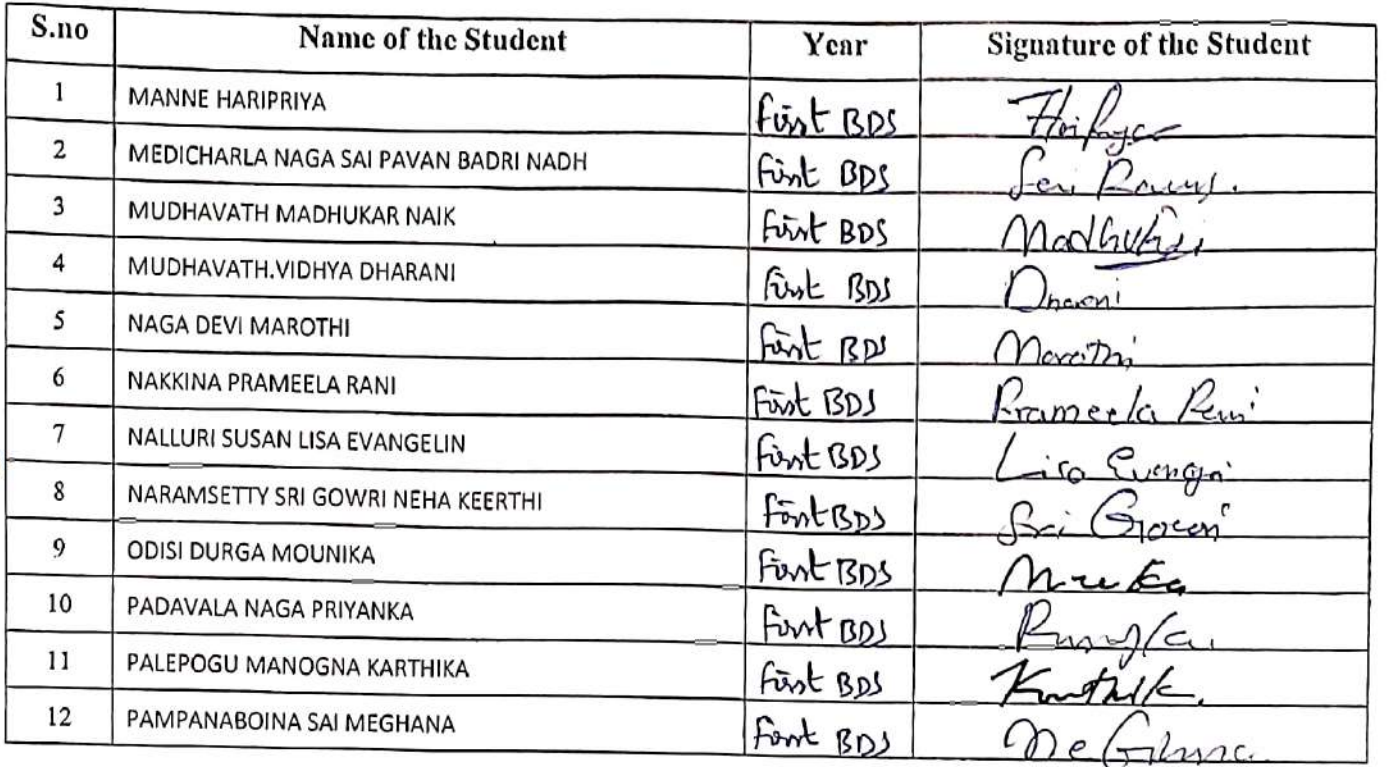 S.no Name of the Student Year Signature of the Student
1 MANNE HARIPRIYA First BDS Haripriya
2 MEDICHARLA NAGA SAI PAVAN BADRI NADH First BDS
3 MUDHAVATH MADHUKAR NAIK First BDS Madhukar
4 MUDHAVATH.VIDHYA DHARANI First BDS Dharani
5 NAGA DEVI MAROTHI First BDS Marothi
6 NAKKINA PRAMEELA RANI First BDS Prameela Rani
7 NALLURI SUSAN LISA EVANGELIN First BDS Lisa
8 NARAMSETTY SRI GOWRI NEHA KEERTHI First BDS Sri Gowri
9 ODISI DURGA MOUNIKA First BDS
10 PADAVALA NAGA PRIYANKA First BDS
11 PALEPOGU MANOGNA KARTHIKA First BDS
12 PAMPANABOINA SAI MEGHANA First BDS